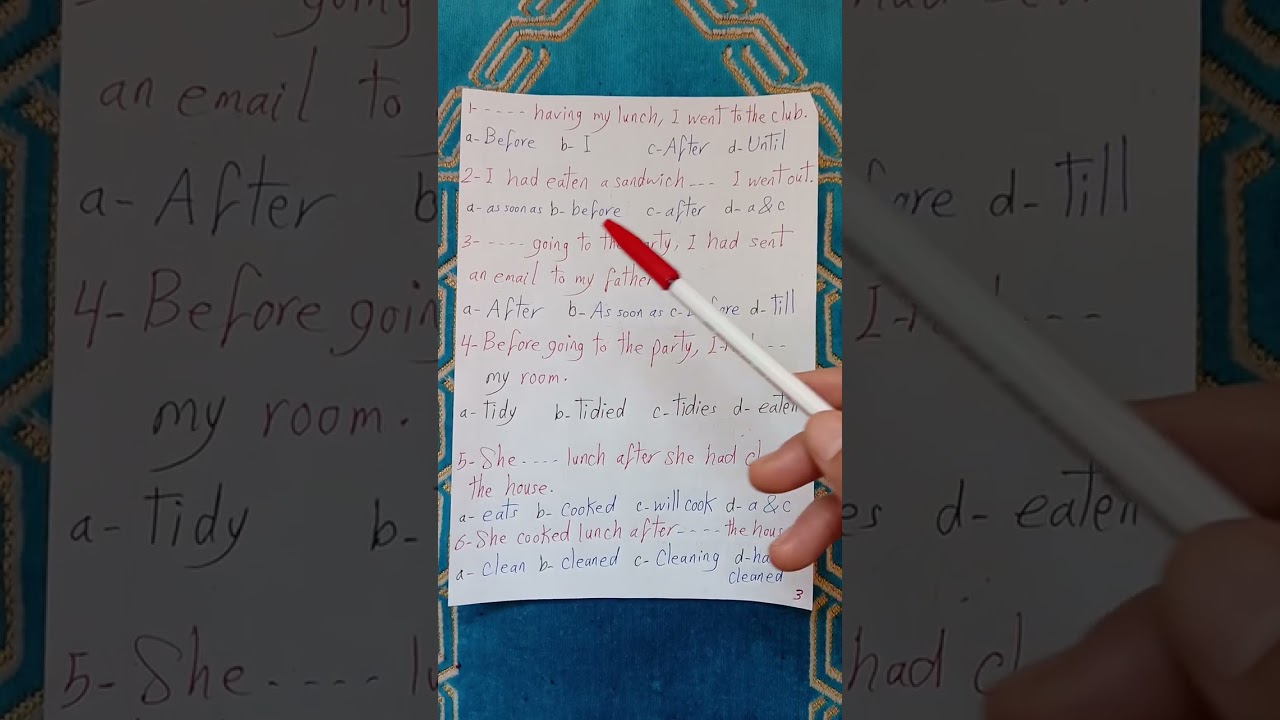 1- ---- having my lunch, I went to the club.
a- Before b- I c- After d- Until
2- I had eaten a sandwich --- I went out.
a- as soon as b- before c- after d- a & c
3- ---- going to the party, I had sent
an email to my father
a- After b- As soon as c- d- till
4- Before going to the party, I ---
my room.
a- tidy b- tidied c- tidies d- eaten
5- She ---- lunch after she had
the house.
a- eats b- cooked c- will cook d- a & c
6- She cooked lunch after ---- the
a- Clean b- cleaned c- Cleaning d-
cleaned
3